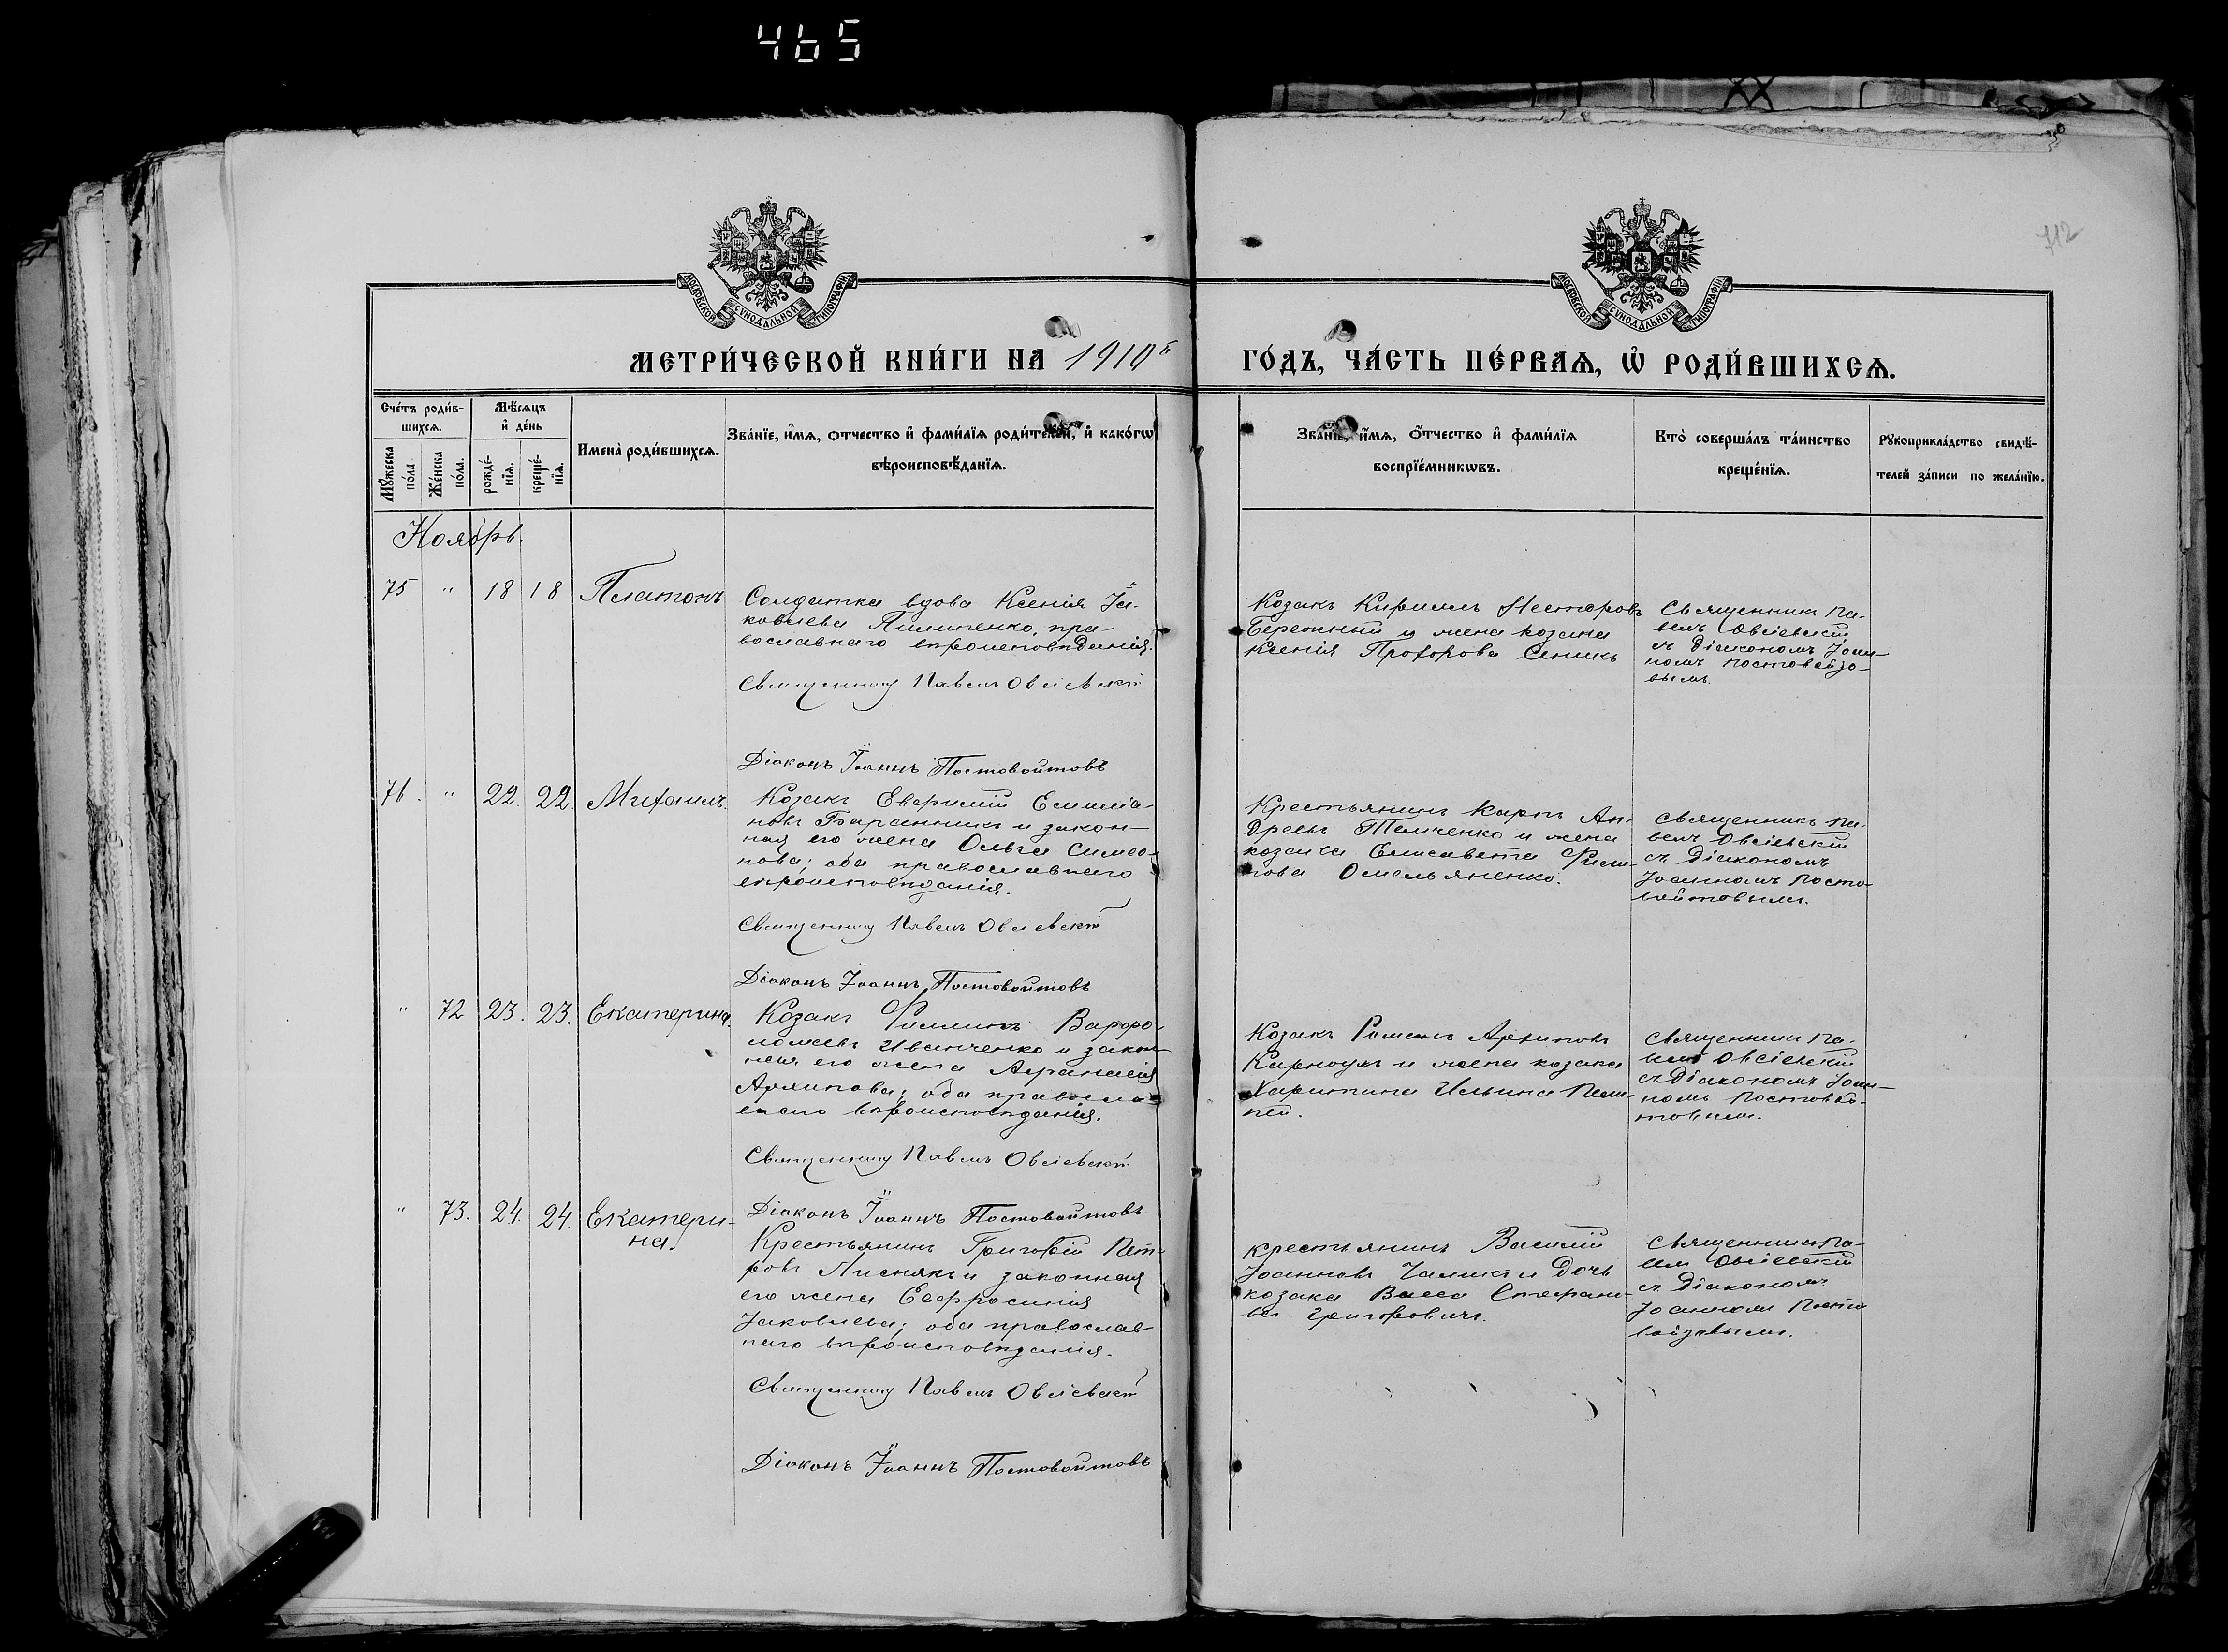 465
712
МОСКОВСКОЙ СѴНОДАЛЬНОЙ ТИПОГРАФІИ
МОСКОВСКОЙ СѴНОДАЛЬНОЙ ТИПОГРАФІИ
МЕТРИ́ЧЕСКОЙ КНИ́ГИ НА 1910й ГО́ДЪ, ЧА́СТЬ ПЕ́РВАѦ, Ѽ РОДИ́ВШИХСѦ.
Сче́тъ роди́в-
шихсѧ.
Мꙋ́жеска по́ла
Же́нска по́ла.
Мѣ́сѧцъ
и҆ де́нь
рожде́-
нїѧ.
креще́-
нїѧ.
Имена̀ роди́вшихсѧ.
Зва́нїе, и҆́мѧ, ѻтчество и҆ фами́лїѧ роди́телей, и҆ како́гѡ
вѣроисповѣ́данїѧ.
Зва́нїе, и҆́мѧ, ѻ҆́тчество и҆ фами́лїѧ
воспрїе́мникѡвъ.
Кто̀ соверша́лъ та́инство
креще́нїѧ.
Рꙋкоприкла́дство свидѣ́-
телей за́писи по жела́нїю.
Ноябрь.
75 " 18 18 Платонъ
Солдатка вдова Ксенія Іа-
ковлева Пилипенко, пра-
вославнаго вѣроисповѣданія.
Священникъ Павелъ Овсіевскій
Діаконъ Іоаннъ Постовойтовъ
Козакъ Кириллъ Нестеровъ
Бережный и жена козака
Ксенія Прохорова Сеникъ
Священникъ Па-
велъ Овсіевскій
съ Діакономъ Іоан-
номъ Постовойто-
вымъ.
76. " 22. 22. Михаилъ.
Козакъ Евфимій Емиліа-
новъ Баранникъ и закон-
ная его жена Ольга Симео-
нова; оба православнаго
вѣроисповѣданія.
Священникъ Павелъ Овсіевскій
Діаконъ Іоаннъ Постовойтовъ
Крестьянинъ Карпъ Ан-
дреевъ Темченко и жена
козака Елисавета Фили-
пова Омельяненко.
Священникъ Па-
велъ Овсіевскій
съ Діакономъ
Іоанномъ Посто-
войтовымъ.
" 72 23. 23. Екатерина.
Козакъ Филиппъ Варфо-
ломеевъ Иванченко и закон-
ная его жена Афанасія
Архипова; оба правосла-
внаго вѣроисповѣданія.
Священникъ Павелъ Овсіевскій
Діаконъ Іоаннъ Постовойтовъ
Козакъ Романъ Архиповъ
Карноухъ и жена козака
Харитина Ильина
Священникъ Па-
велъ Овсіевскій
съ Діакономъ Іоан-
номъ Постовой-
товымъ.
" 73. 24. 24. Екатери-
на.
Крестьянинъ Григорій Пет-
ровъ Лиснякъ и законная
его жена Евфросинія
Іаковлева; оба православ-
наго вѣроисповѣданія.
Священникъ Павелъ Овсіевскій
Діаконъ Іоаннъ Постовойтовъ
крестьянинъ Василій
Іоанновъ и дочь
козака Васса Стефано-
ва Григоровичъ.
Священникъ Па-
велъ Овсіевскій
съ Діакономъ
Іоанномъ Посто
войтовымъ.